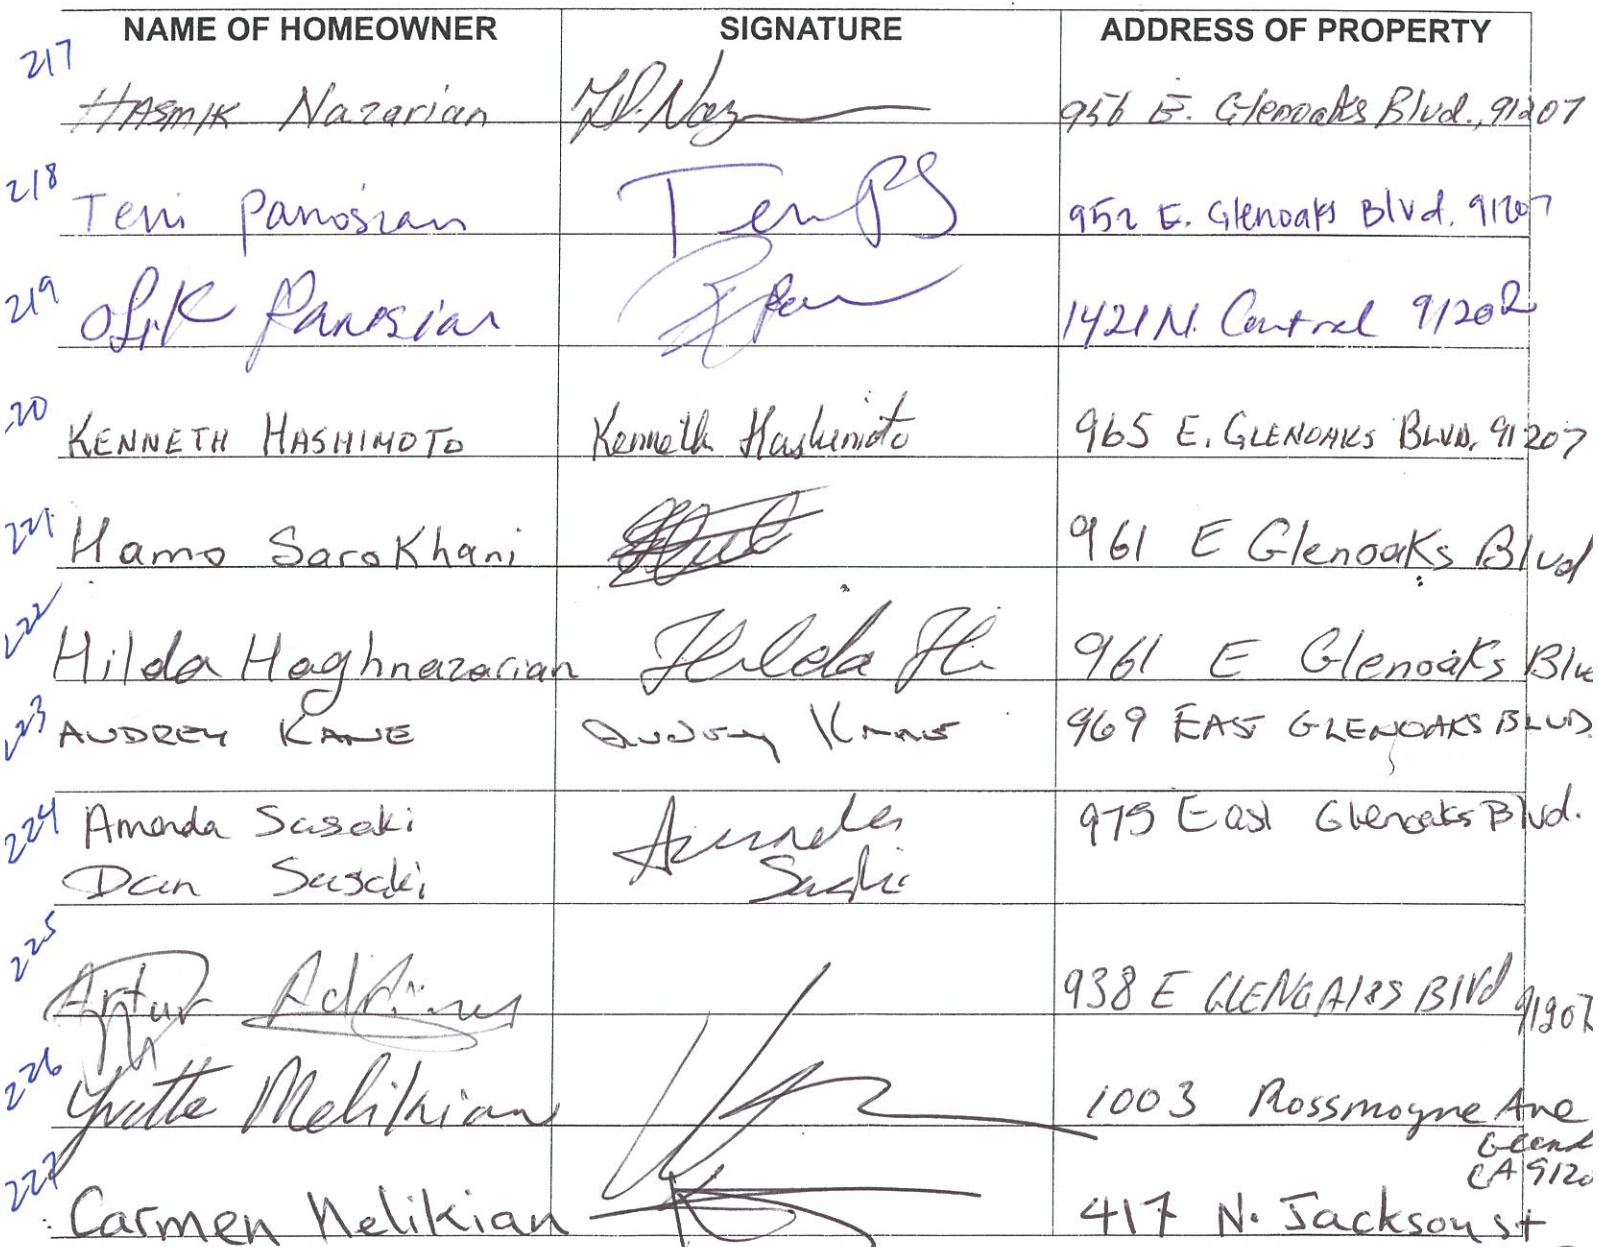 NAME OF HOMEOWNER SIGNATURE ADDRESS OF PROPERTY
217 HASMIK Nazarian H.Naz 956 E. Glenoaks Blvd., 91207
218 Teni Panosian Teni PS 952 E. Glenoaks Blvd. 91207
219 Panosian 1421 N. Central 91202
20 KENNETH HASHIMOTO Kenneth Hashimoto 965 E. GLENOAKS BLVD. 91207
221 Hamo SaroKhani 961 E Glenoaks Blvd
222 Hilda Haghnazarian Hilda H 961 E GlenoaKs Blv
223 AUDREY KANE Audrey Kane 969 EAST GLENOAKS BLVD.
224 Amanda Sasaki Amanda 975 East Glenoaks Blvd.
Dan Sasaki Sasaki
225 Artur 938 E GLENOAKS Blvd 91207
226 Yvette Melikian 1003 Rossmoyne Ave
Glend
CA 9120
227 Carmen Melikian 417 N. Jackson st